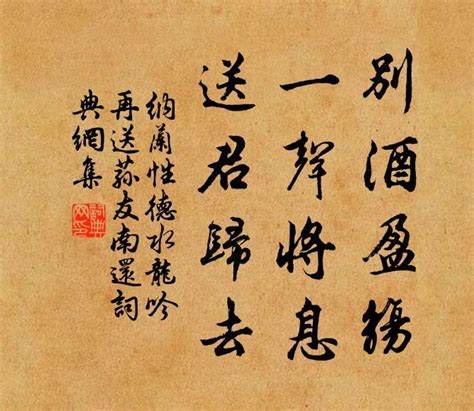 别酒盈觴
一聲將息
送君歸去
納蘭性德水龍吟
再送蓀友南還詞
典網集